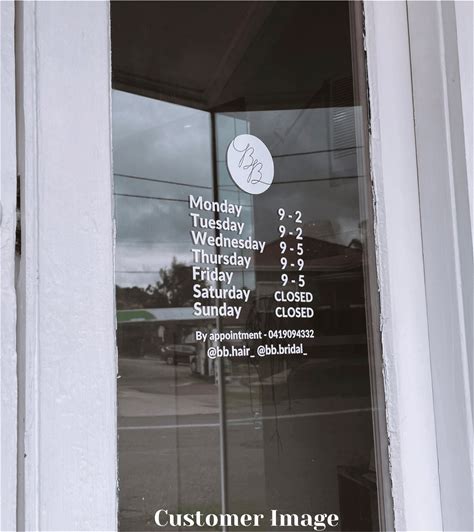 BB
Monday 9 - 2
Tuesday 9 - 2
Wednesday 9 - 5
Thursday 9 - 9
Friday 9 - 5
Saturday CLOSED
Sunday CLOSED
By appointment - 0419094332
@bb.hair_ @bb.bridal_
Customer Image